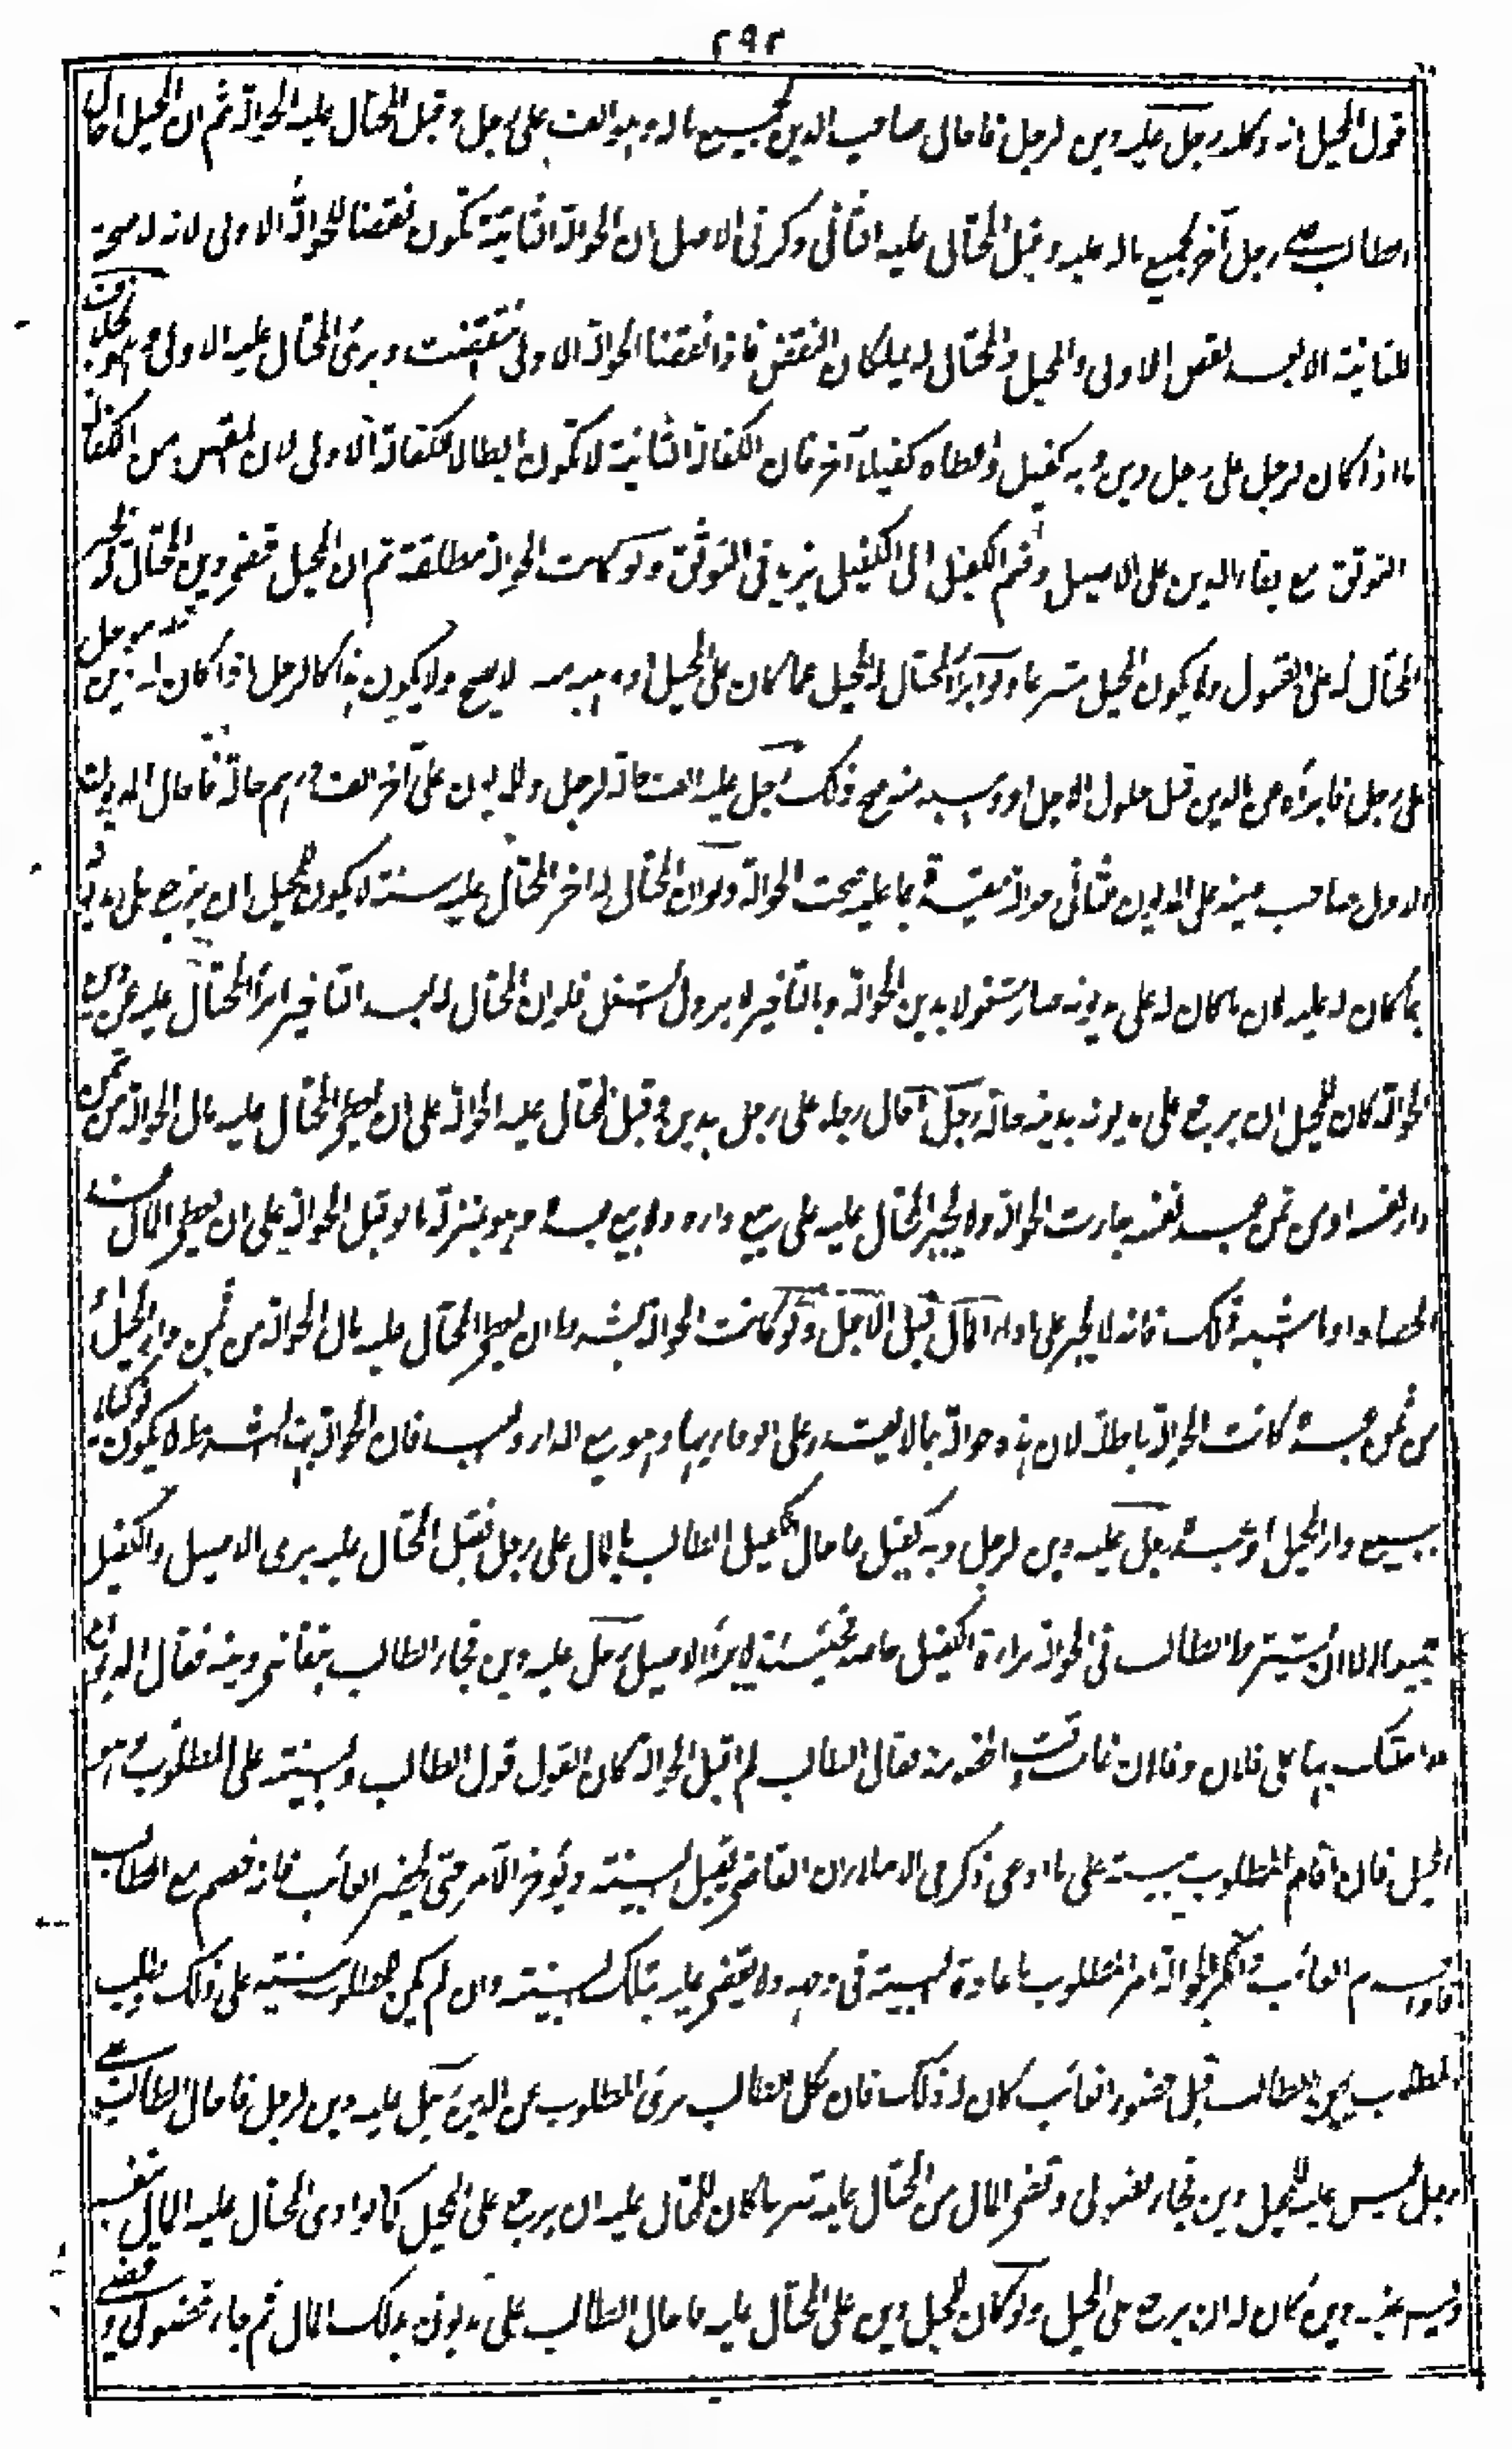 ٢٩٢
قول المحيل انه وكله رجل عليه دين لرجل فاحال صاحب الدين بجميع ماله وهو الف على رجل وقبل المحتال عليه الحوالة ثم ان المحيل احال
الطالب على رجل آخر بجميع ماله عليه وقبل المحتال عليه الثانى ذكر فى الاصل ان الحوالة الثانية تكون نقضا للحوالة الاولى لانه لا صحة
للثانية الا بعد نقض الاولى والمحيل والمحتال له يملكان النقض فاذا نقضا الحوالة الاولى انتقضت وبرئ المحتال عليه الاول وهو بخلاف
ما اذا كان لرجل على رجل دين وبه كفيل واعطاه كفيلا آخر فان الكفالة الثانية لا تكون ابطالا للكفالة الاولى لان المقصود من الكفالة
التوثق مع بقاء الدين على الاصيل وضم الكفيل الى الكفيل يزيد فى التوثق ولو كانت الحوالة مطلقة ثم ان المحيل قضى دين المحتال له يجبر
المحتال له على القبول ولا يكون المحيل متبرعا ولو ابرأ المحتال له المحيل عما كان على المحيل او وهبه لا يصح ولا يكون هذا كالرجل اذا كان له دين مؤجل
على رجل فابرأه من الدين قبل حلول الاجل او وهبه منه صح ذلك رجل عليه الف حالة لرجل وللمديون على آخر الف درهم حالة فاحال المديون
الاول صاحب دينه على المديون الثانى حوالة مقيدة بما عليه صحت الحوالة ولو ان المحتال له اخر المحتال عليه سنة لا يكون للمحيل ان يرجع على مديونه
بما كان له عليه لان ما كان له على مديونه صار مشغولا بدين الحوالة وبالتأخير لا يزول الشغل فلو ان المحتال له بعد التأخير ابرأ المحتال عليه عن دين
الحوالة كان للمحيل ان يرجع على مديونه بدينه حالة رجل احال رجلا على رجل بدين وقبل المحتال عليه الحوالة على ان يعطى المحتال عليه مال الحوالة من ثمن
دار نفسه او من ثمن عبد نفسه جازت الحوالة ولا يجبر المحتال عليه على بيع داره ولا بيع عبده وهو بمنزلة ما لو قبل الحوالة على ان يعطى المال عند
الحصاد او ما اشبه ذلك فانه لا يجبر على اداء المال قبل الاجل ولو كانت الحوالة بشرط ان يعطى المحتال عليه مال الحوالة من ثمن دار المحيل او
من ثمن عبده كانت الحوالة باطلة لان هذه حوالة بما لا يقدر على الوفاء بها وهو بيع الدار والعبد فان الحوالة بهذا الشرط لا يكون توكيلا
ببيع دار المحيل او عبده رجل عليه دين لرجل وبه كفيل فاحال الكفيل الطالب بالمال على رجل فقبل المحتال عليه برئ الاصيل والكفيل
جميعا الا ان يشترط الطالب فى الحوالة براءة الكفيل خاصة فحينئذ لا يبرأ الاصيل رجل عليه دين فجاء الطالب يتقاضى دينه فقال المديون
قد احلتك بها على فلان وفلان غائب وقت الخصومة فقال الطالب لم اقبل الحوالة كان القول قول الطالب والبينة على المطلوب وهو
المحيل فان اقام المطلوب بينة على ما ادعى ذكر فى الاملاء ان القاضى يقبل البينة ويؤخر الامر حتى يحضر الغائب فانه خصم مع الطالب
فاذا قدم الغائب وانكر الحوالة امر المطلوب باعادة البينة فى وجهه ولا يقضى عليه بتلك البينة وان لم يكن للمطلوب بينة على ذلك وطلب
المطلوب يمين الطالب قبل حضور الغائب كان له ذلك فان نكل الطالب برئ المطلوب عن الدين رجل عليه دين لرجل فاحال الطالب على
رجل ليس عليه للمحيل دين فجاء فضولى وقضى المال عن المحتال عليه تبرعا كان للمحتال عليه ان يرجع على المحيل كما لو ادى المحتال عليه المال بنفسه
وليس عليه دين كان له ان يرجع على المحيل ولو كان للمحيل دين على المحتال عليه فاحال الطالب على مديونه بذلك المال ثم جاء فضولى وقضى